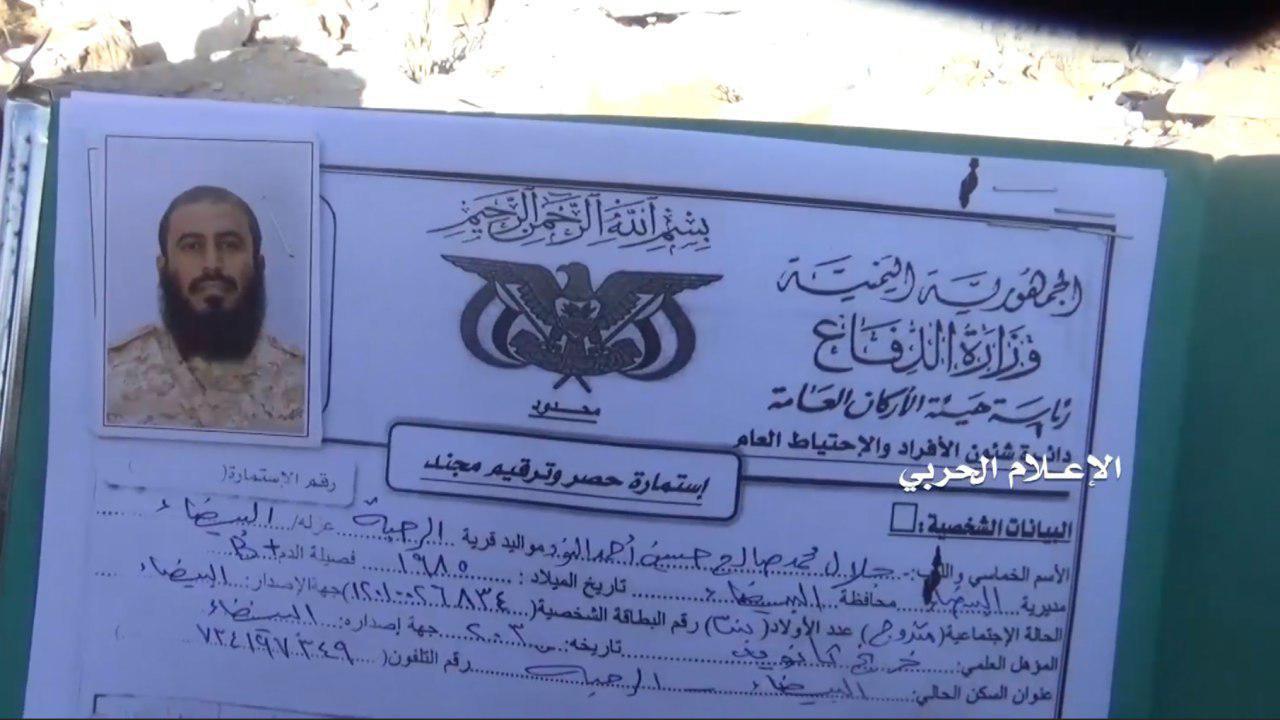 بسم الله الرحمن الرحيم
الجمهورية اليمنية
وزارة الدفاع
رئاسة هيئة الأركان العامة
دائرة شئون الأفراد والإحتياط العام
محدود
الإعلام الحربي
إستمارة حصر وترقيم مجند
رقم الإستمارة( )
البيانات الشخصية :
الأسم الخماسي واللقب: جلال محمد صالح حسين أحمد مواليد قرية الرحبة عزله/ البيضاء
مديرية البيضاء محافظة البيضاء تاريخ الميلاد : ١٩٨٥ فصيلة الدم B+
الحالة الإجتماعية( متزوج ) عدد الأولاد( ) رقم البطاقة الشخصية( ١٢٠١٠٠٢٦٨٣٤ )جهة الإصدار: البيضاء
المؤهل العلمي: خريج ثانوية تاريخه: ٢٠٠٣ جهة إصداره: البيضاء
عنوان السكن الحالي: البيضاء - الرحبة رقم التلفون( ٧٣٤١٩٧٣٤٩ )